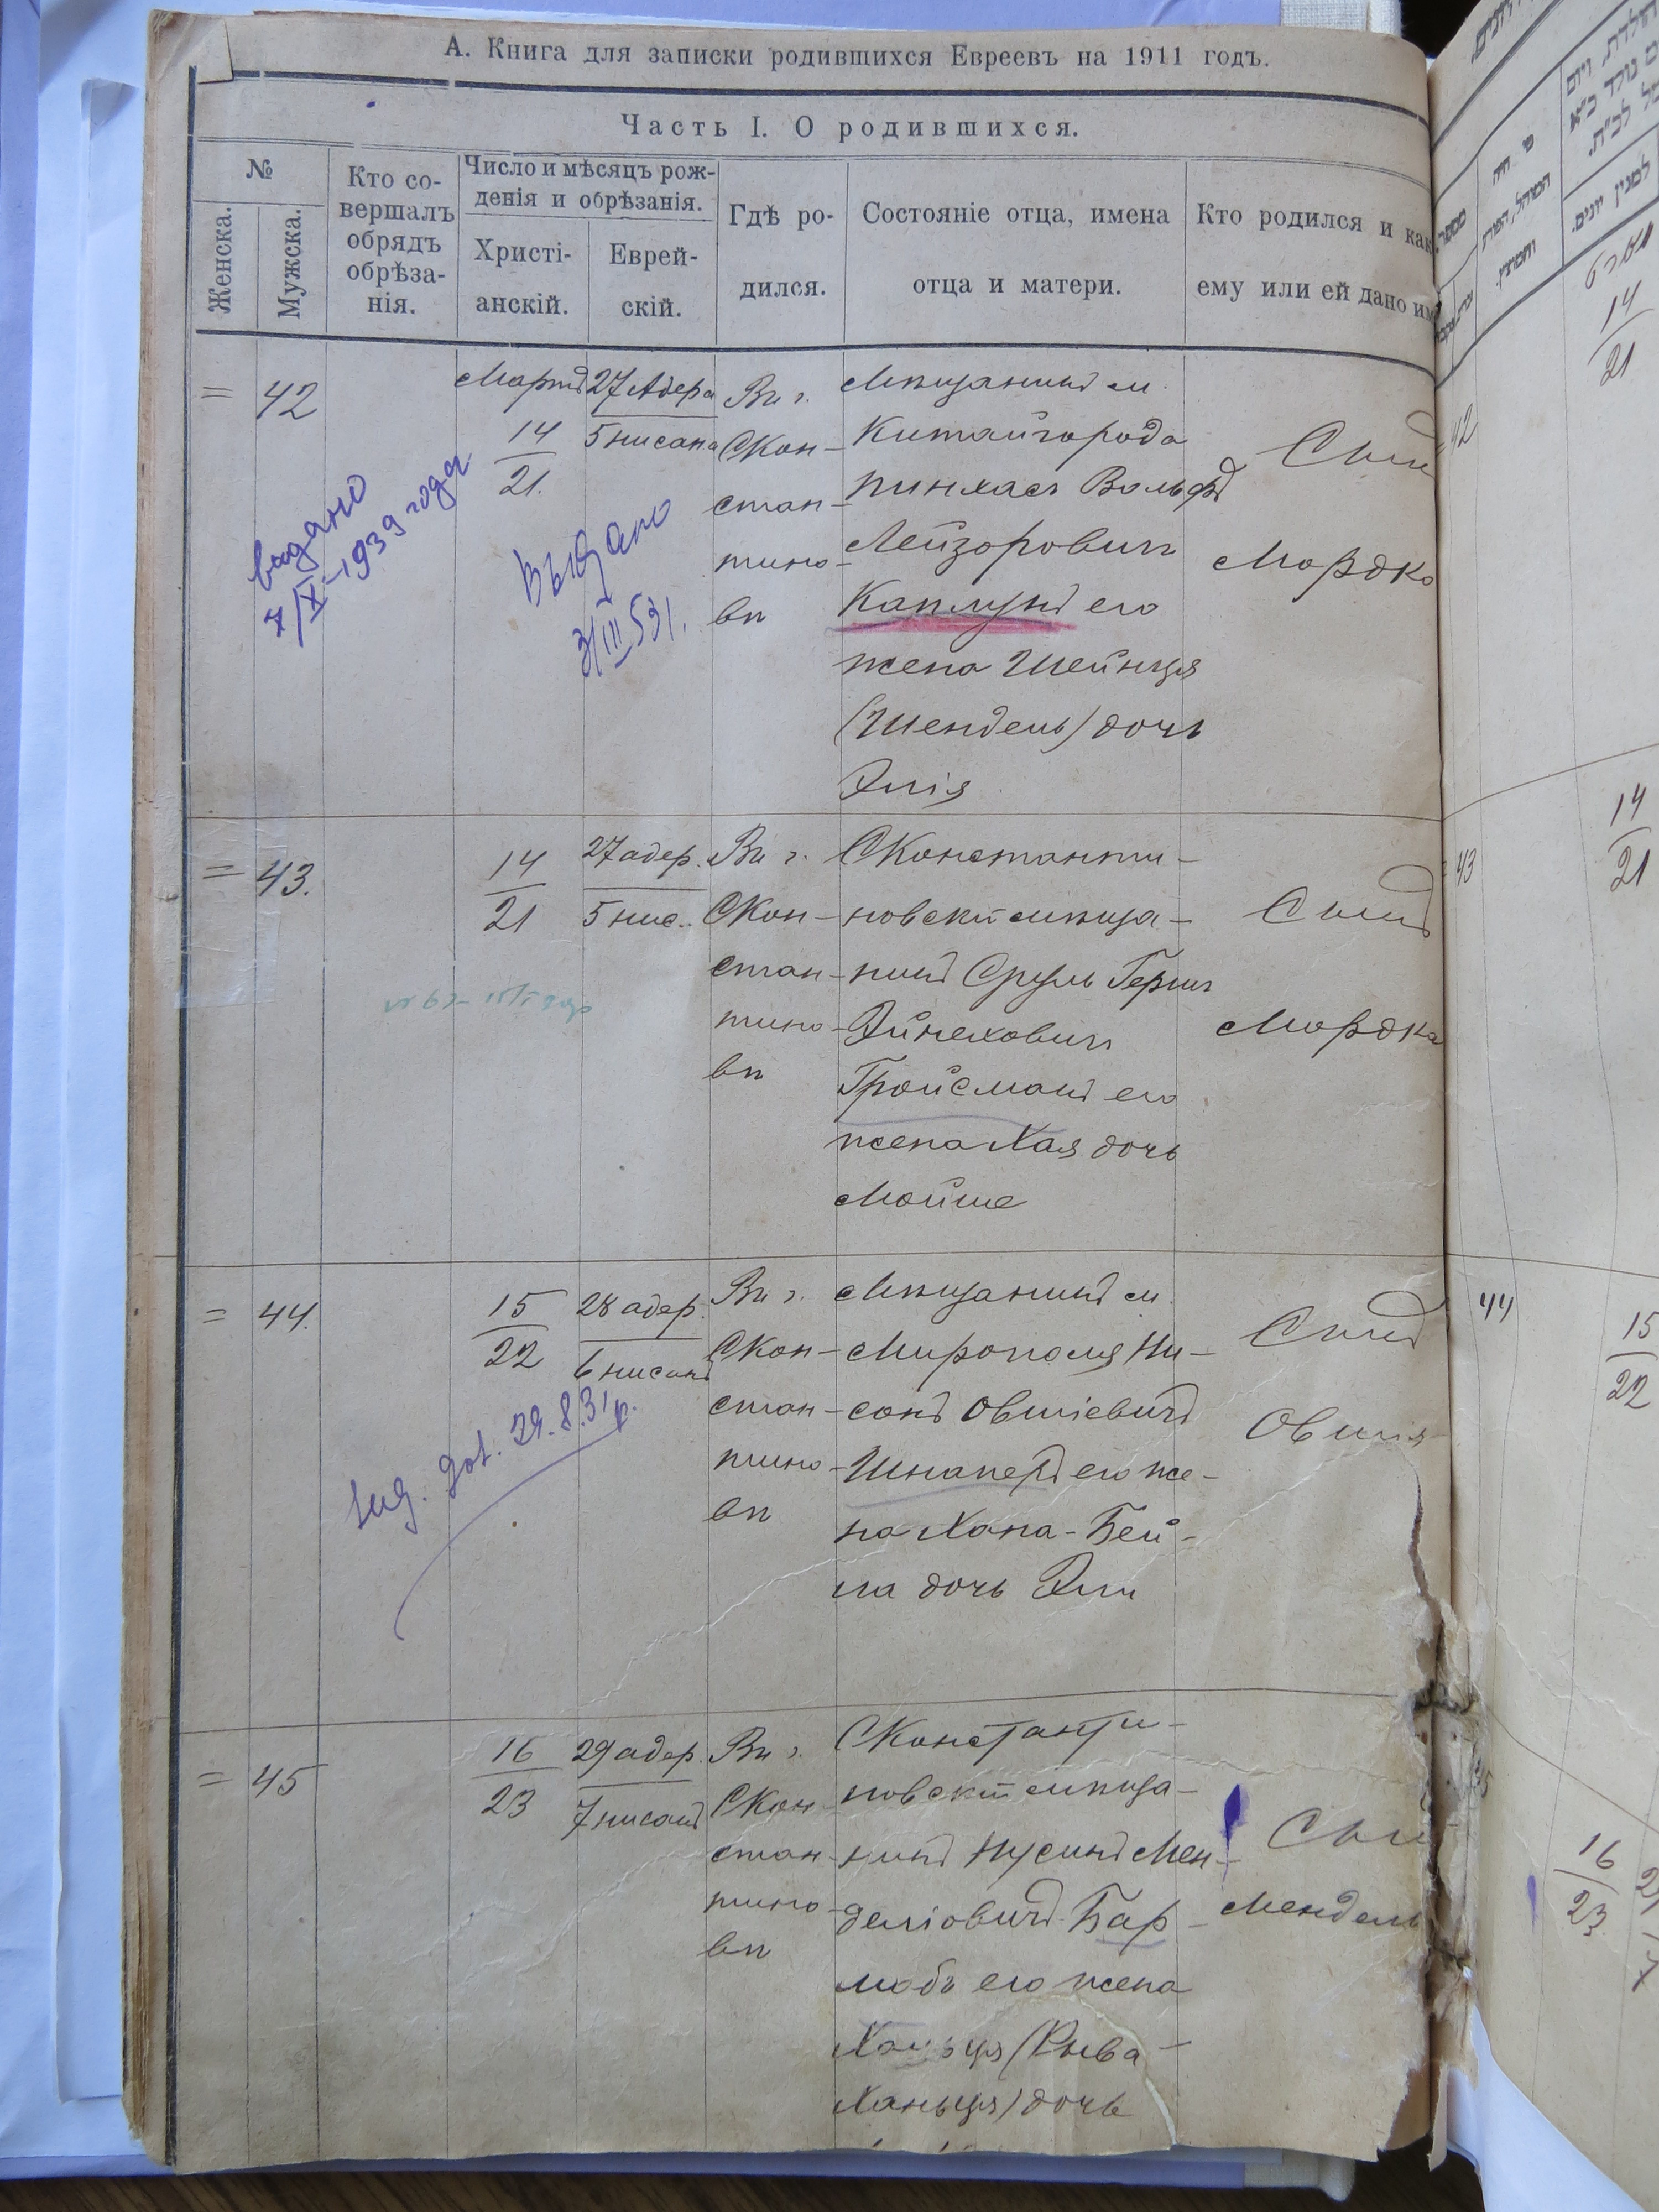 А. Книга для записки родившихся Евреевъ на 1911 годъ.
Часть I. О родившихся.
№
Женска.
Мужска.
Кто со-
вершалъ
обрядъ
обрѣза-
нія.
Число и мѣсяцъ рож-
денія и обрѣзанія.
Христі-
анскій.
Еврей-
скій.
Гдѣ ро-
дился.
Состояніе отца, имена
отца и матери.
Кто родился и как
ему или ей дано им
= 42
Мартъ
14
21.
27 Адера
5 нисана
Въ г.
СКон-
стан-
тино-
вѣ
Мѣщанинъ м.
Китайгорода
Пинхасъ Вольфъ
Лейзоровичъ
Каплунъ его
жена Шейнця
(Шендель) дочь
Элія
Сынъ
Мордко
выдано
7/X-1939 года
Выдано
3/III 53 г.
= 43.
14
21
27 адер.
5 нис.
Въ г.
СКон-
стан-
тино-
вѣ
СКонстанти-
новскій мѣща-
нинъ Сруль Гершъ
Эйнеховичъ
Гройсманъ его
жена Хая дочь
Мойше
Сынъ
Мордко
= 44.
15
22
28 адер.
6 нисанъ
Въ г.
СКон-
стан-
тино-
вѣ
Мѣщанинъ м.
Мирополя Ни-
сонъ Овшіевичъ
Шнаперъ его же-
на Хана-Бей-
ла дочь Эли
Сынъ
Овшія
29.8.31 р.
= 45
16
23
29 адер.
7 нисанъ
Въ г.
СКон-
стан-
тино-
вѣ
СКонстанти-
новскій мѣща-
нинъ Нусинъ Мен-
деліовичъ Бар-
его жена
(Рыва-
Ханьця) дочь
Сынъ
Мендель
42
14
21
43
14
21
44
15
22
16
23